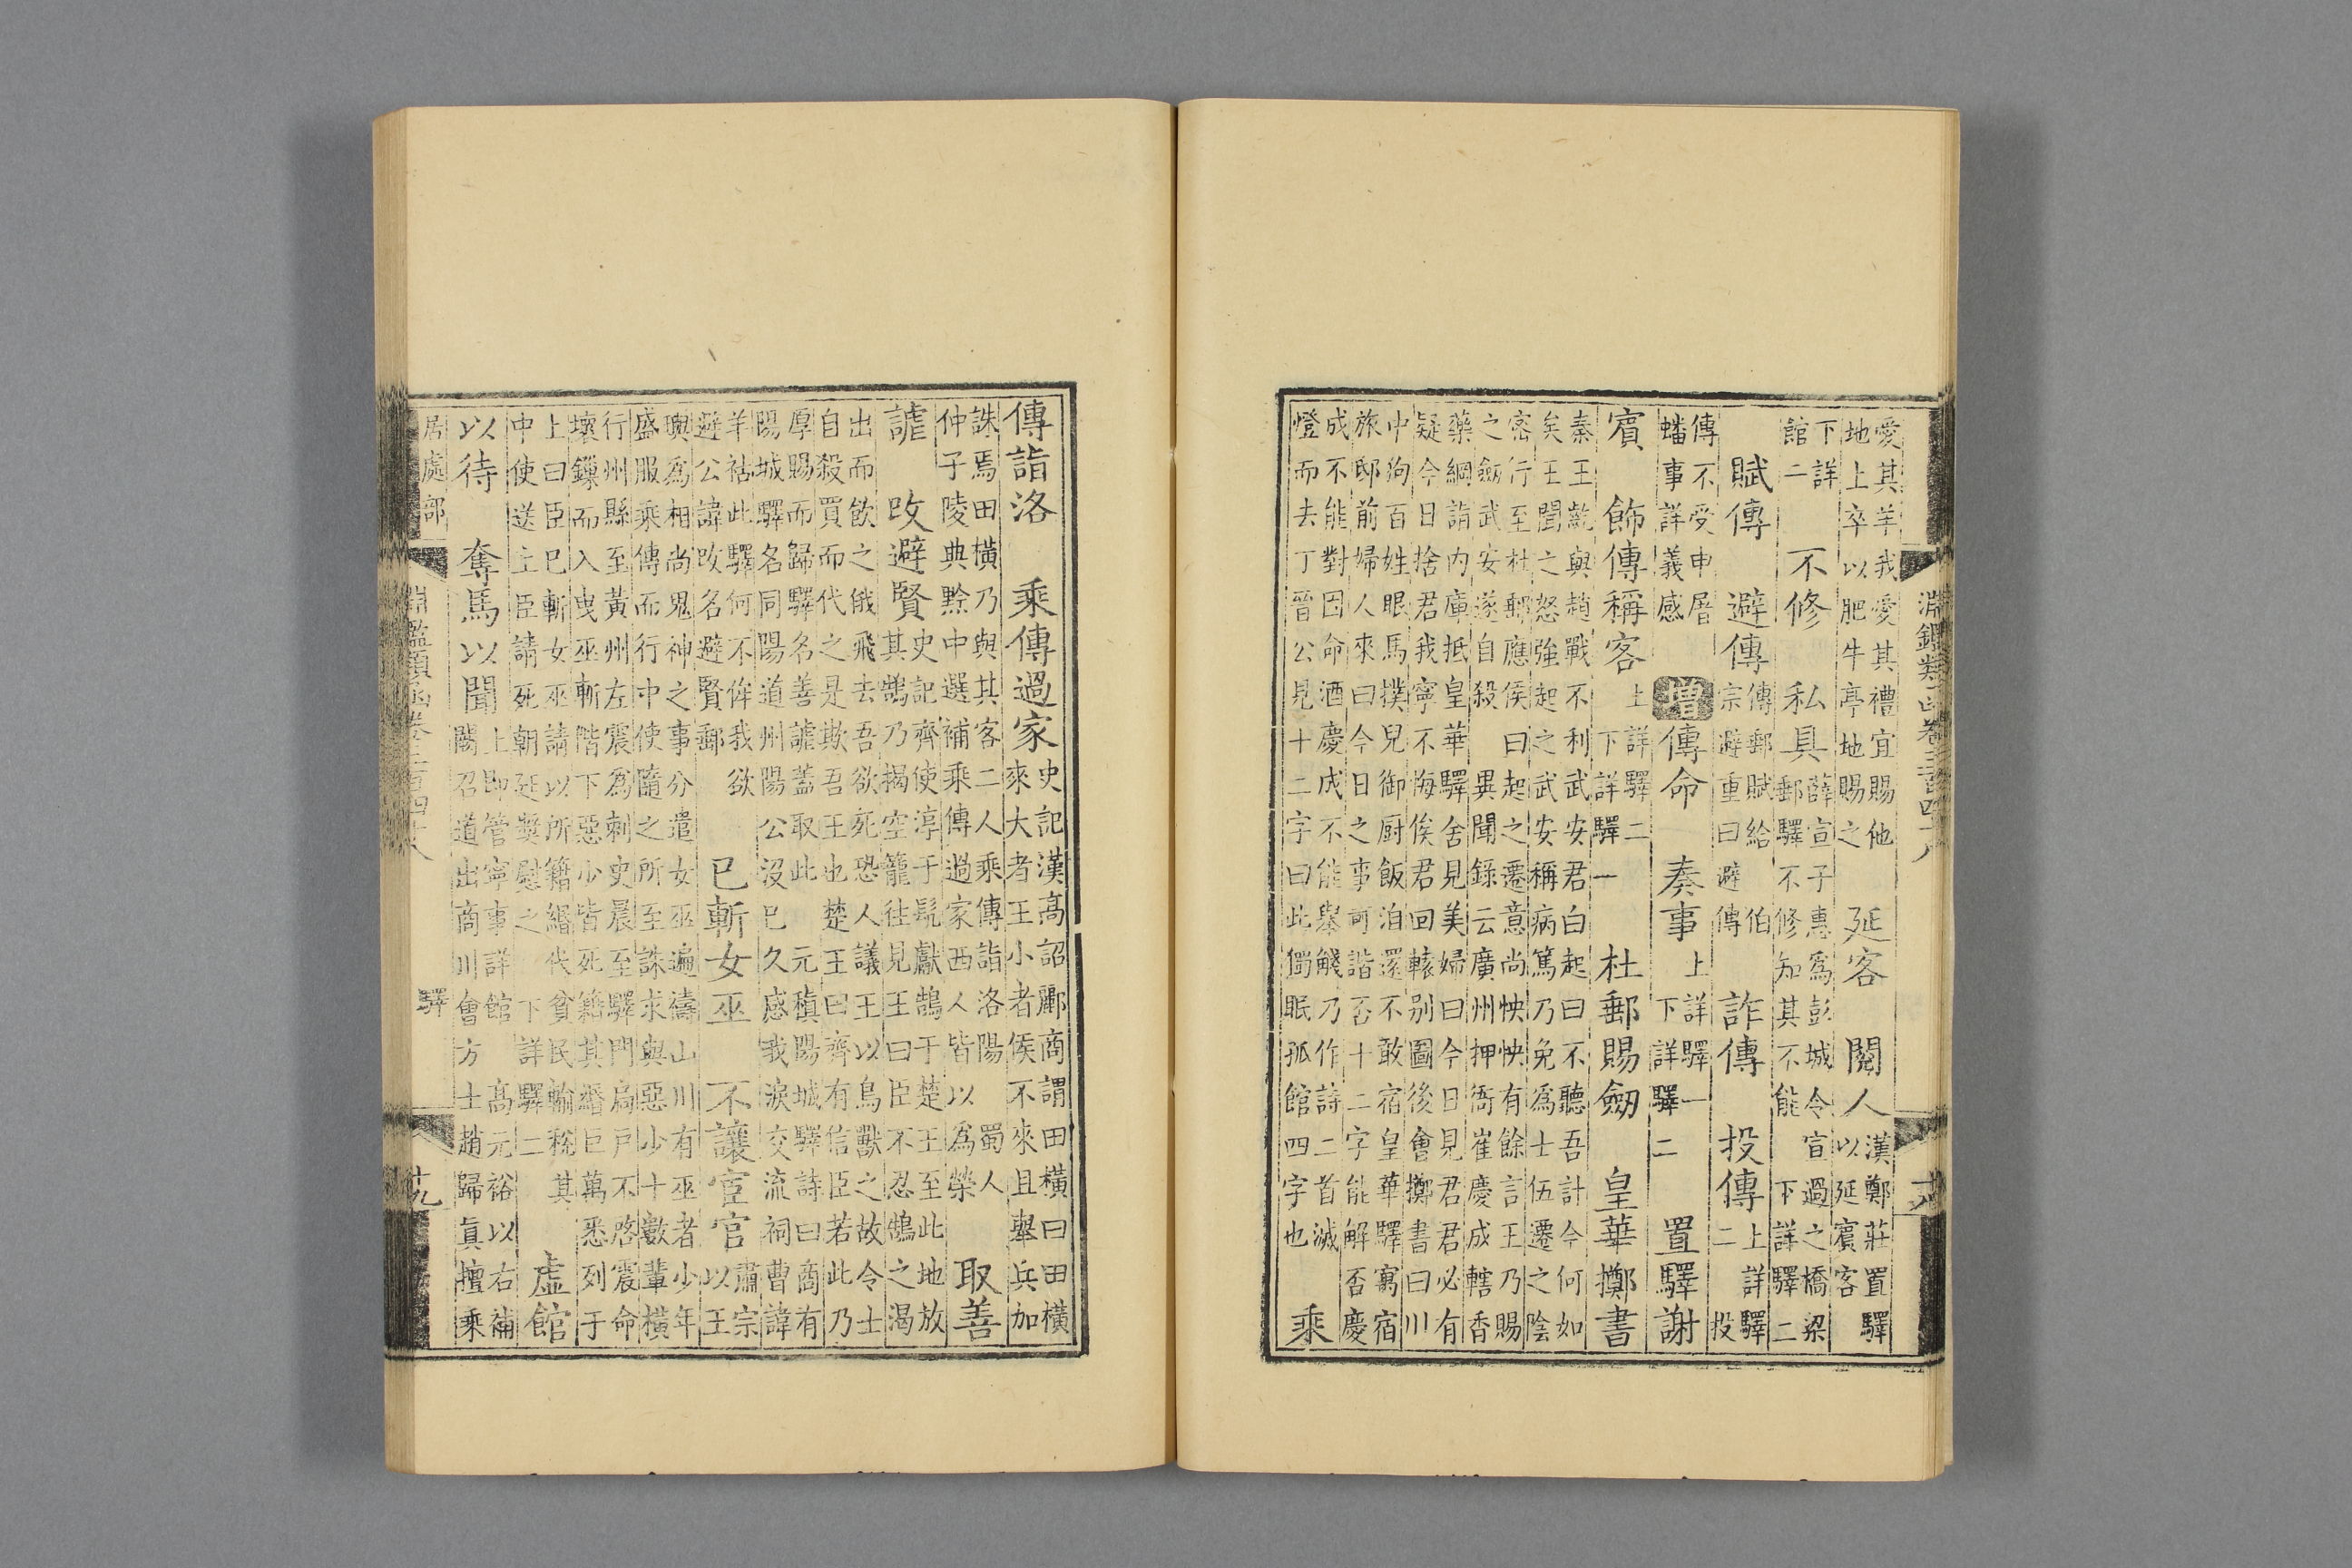 愛其羊我愛其禮宜賜他
地上卒以肥牛亭地賜之
延客　閱人
漢鄭莊置驛
以延賓客
下詳
館二
不修　私具
薛宣子惠為彭城令宣過之橋梁
郵驛不修知其不能　下詳驛二
賦傳　避傳
傳郵賦給伯
宗避重曰避傳
詐傳　投傳
上詳驛
二　投
傳不受申屠
蟠事詳義感
增　傳命　奏事
上詳驛一
下詳驛二
置驛謝
賓　飾傳稱客
上詳驛二
下詳驛一
杜郵賜劒　皇華擲書
秦王齕與趙戰不利武安君白起曰不聽吾計今何如
矣王聞之怒強起之武安稱病篤乃免為士伍遷之陰
密行至杜郵應侯曰起之遷意尚怏怏有餘言王乃賜
之劒武安遂自殺　異聞錄云廣州押衙崔慶成轄香
藥綱詣內庫抵皇華驛舍見美婦曰今日見君君必有
疑今日捨君我寧不悔俟君回轅別圖後會擲書曰川
中狗百姓眼馬撲兒御厨飯洎還不敢宿皇華驛寓宿
旅邸前婦人來曰今日之事可諧否十二字能解否慶
成不能對因命酒慶成不能舉觴乃作詩二首滅
燈而去丁晉公見十二字曰此獨眠孤館四字也
乘
傳詣洛　乘傳過家
史記漢高詔酈商謂田橫曰田橫
來大者王小者侯不來且舉兵加
誅焉田橫乃與其客二人乘傳詣洛陽　蜀人
仲子陵典黔中選補乘傳過家西人皆以為榮
取善
謔　改避賢
史記齊使淳于髡獻鵠于楚王至此地放
其鵠乃揭空籠往見王曰臣不忍鵠之渴
出而飲之俄飛去吾欲死恐人議王以鳥獸之故令士
自殺買而代之是欺吾王也楚王曰齊有信臣若此乃
厚賜而歸驛名善謔蓋取此　元稹陽城驛詩曰商有
陽城驛名同陽道州陽公沒已久感我淚交流祠曹諱
羊祜此驛何不侔我欲
避公諱改名避賢郵
已斬女巫　不讓宦官
肅宗
以王
璵為相尚鬼神之事分遣女巫遍禱山川有巫者少年
盛服乘傳而行中使隨之所至誅求與惡少十數輩橫
行州縣至黃州左震為刺史晨至驛門扃戶不啓震命
壞鏁而入曳巫斬階下惡少皆死籍其緡巨萬悉列于
上曰臣已斬女巫請以所籍緡代貧民輸稅其
中使送上臣請死朝廷奬慰之　下詳驛二
虛館
以待　奪馬以聞
上即管寧事詳館　高元裕以右補
闕召道出商川會方士趙歸真擅乘
居處部
淵鑑類函卷三百四十八
驛
十九